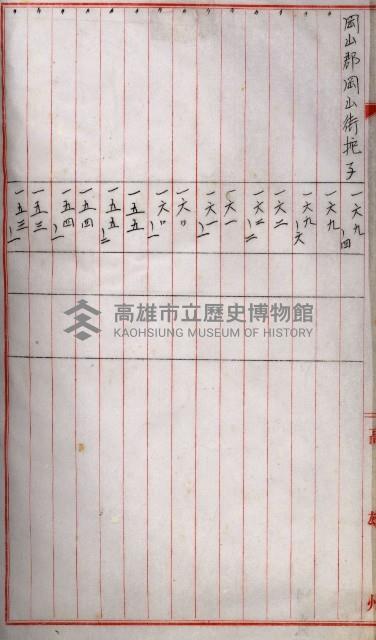 岡山郡岡山街挖子
一六九ノ四
一六九
一六九ノ六
一六二
一六二ノ二
一六一
一六一ノ一
一六〇
一六〇ノ一
一五五
一五五ノ二
一五四
一五四ノ一
一五三
一五三ノ一
高雄州
高雄市立歷史博物館
KAOHSIUNG MUSEUM OF HISTORY